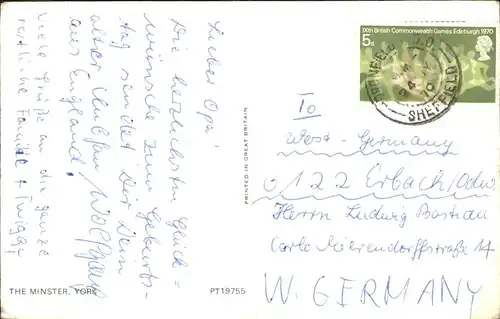 Lieber Opa!
Die herzlichsten Glück=
wünsche zum Geburts-
tag sendet Dir Dein
alter
aus England, Wolfgang
viele Grüße an die ganze
restliche Familie + Twiggy
THE MINSTER, YORK
PT19755
PRINTED IN GREAT BRITAIN
IXth British Commonwealth Games Edinburgh 1970
5d
SHEFFIELD
To
West-Germany
6122 Erbach/Odw
Herrn Ludwig Bastian
Carlo Mierendorffstraße 17
W. GERMANY